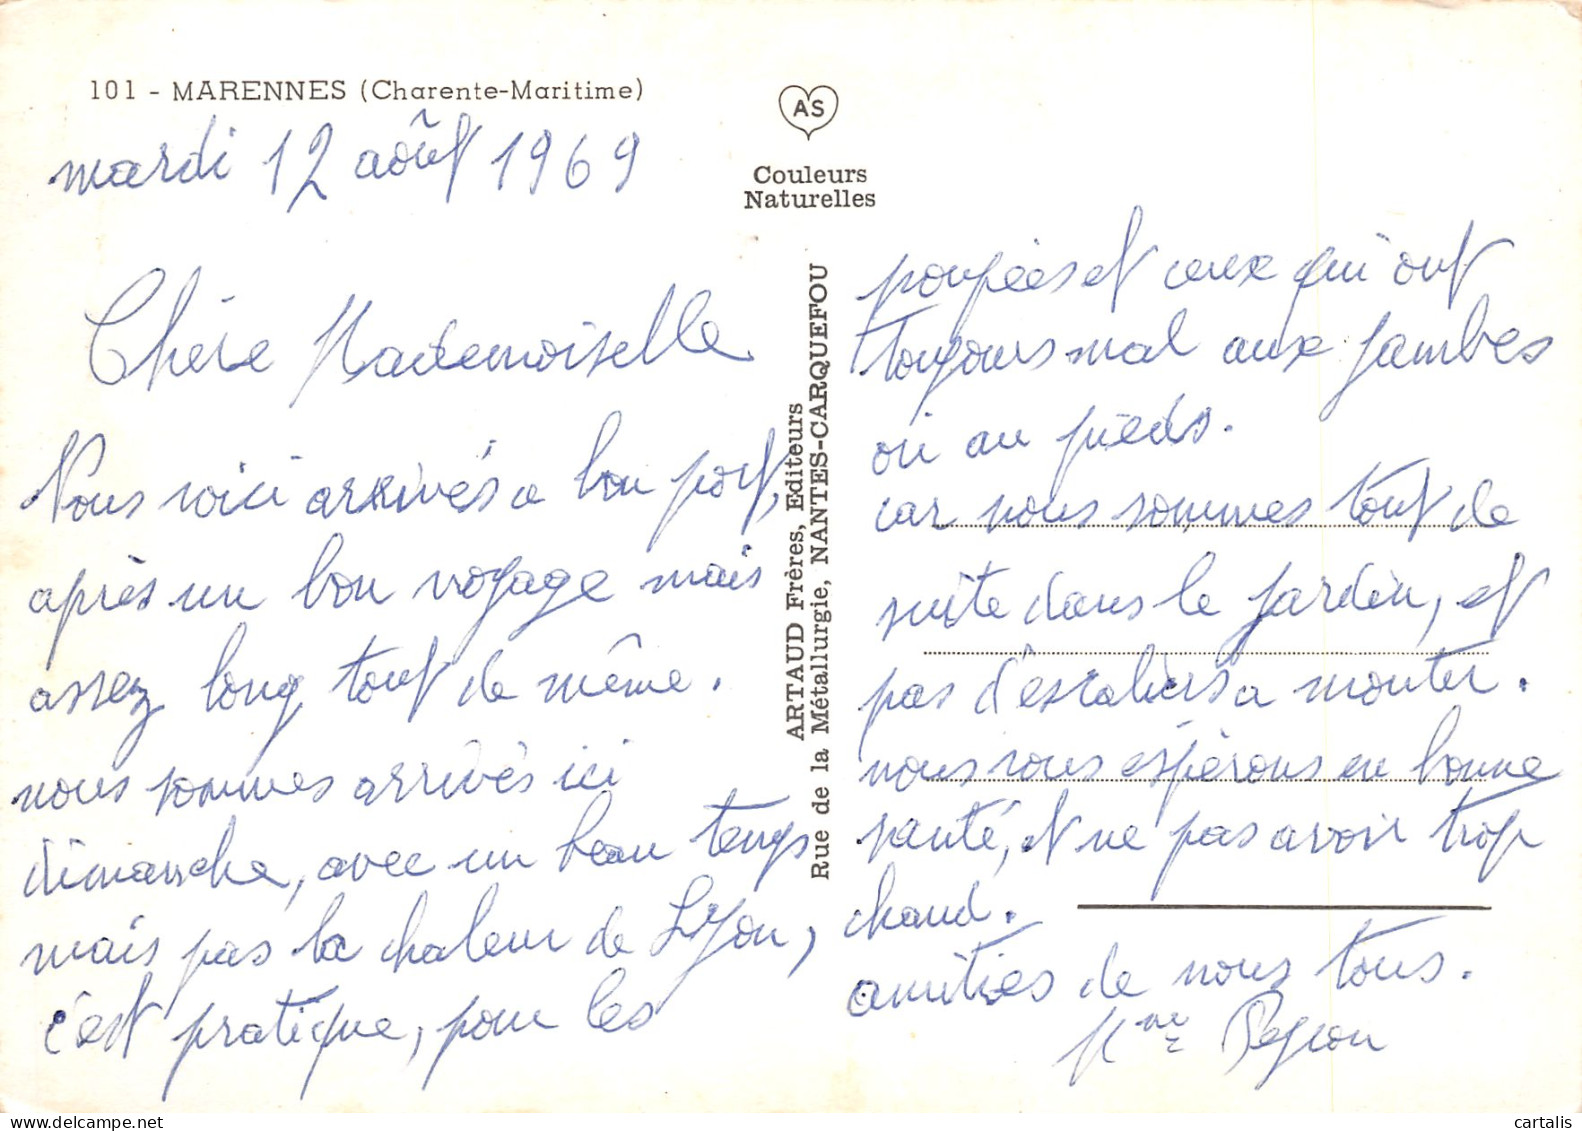 101 - MARENNES (Charente-Maritime)
mardi 12 août 1969
Chère Mademoiselle
Nous voici arrivés a bon port,
après un bon voyage mais
assez long tout de même.
nous sommes arrivés ici
dimanche, avec un beau temps
mais pas la chaleur de Lyon,
c'est pratique, pour les
AS
Couleurs
Naturelles
ARTAUD Frères, Editeurs
Rue de la Métallurgie, NANTES-CARQUEFOU
poupées et ceux qui ont
toujours mal aux jambes
ou au pieds.
car nous sommes tout de
suite dans le jardin, et
pas d'escaliers a monter.
nous vous espérons en bonne
santé, et ne pas avoir trop
chaud.
amitiés de nous tous.
Mme
cartalis